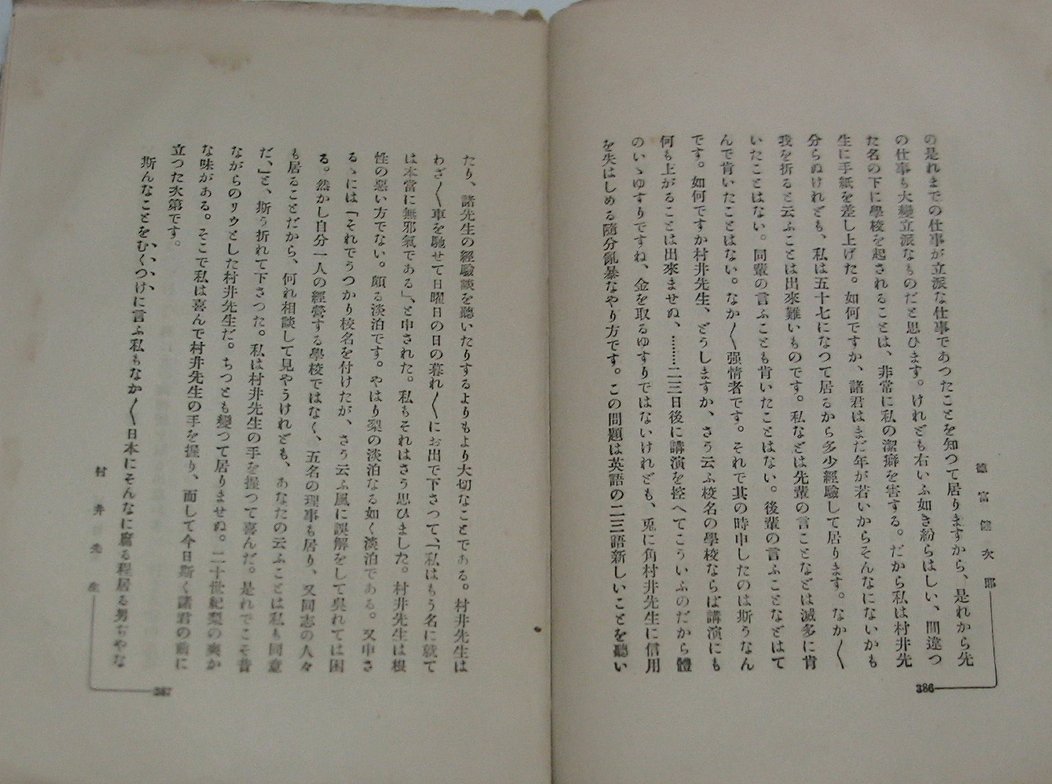 德富健次郎
の是れまでの仕事が立派な仕事であつたことを知つて居りますから、是れから先
の仕事も大變立派なものだと思ひます。けれども右いふ如き紛らはしい、間違つ
た名の下に學校を起されることは、非常に私の潔癖を害する。だから私は村井先
生に手紙を差し上げた。如何ですか、諸君はまだ年が若いからそんなにないかも
分らぬけれども、私は五十七になつて居るから多少經驗して居ります。なか〱
我を折ると云ふことは出來難いものです。私などは先輩の言ことなどは滅多に肯
いたことはない。同輩の言ふことも肯いたことはない。後輩の言ふことなどはて
んで肯いたことはない。なか〱强情者です。それで其の時申したのは斯うなん
です。如何ですか村井先生、どうしますか、さう云ふ校名の學校ならば講演にも
何も上がることは出來ませぬ、………二三日後に講演を控へてこういふのだから體
のいゝゆすりですね、金を取るゆすりではないけれども、兎に角村井先生に信用
を失はしめる隨分亂暴なやり方です。この問題は英語の二三語新しいことを聽い
386
たり、諸先生の經驗談を聽いたりするよりもより大切なことである。村井先生は
わざ〱車を馳せて日曜日の日の暮れ〱にお出で下さつて、「私はもう名に就て
は本當に無邪氣である」、と申された。私もそれはさう思ひました。村井先生は根
性の惡い方でない。頗る淡泊です。やはり梨の淡泊なる如く淡泊である。又申さ
るゝには「それでうつかり校名を付けたが、さう云ふ風に誤解をして呉れては困
る。然かし自分一人の經營する學校ではなく、五名の理事も居り、又同志の人々
も居ることだから、何れ相談して見やうけれども、あなたの云ふことは私も同意
だ、」と、斯う折れて下さつた。私は村井先生の手を握つて喜んだ。是れでこそ昔
ながらのリウとした村井先生だ。ちつとも變つて居りませぬ。二十世紀梨の爽か
な味がある。そこで私は喜んで村井先生の手を握り、而して今日斯く諸君の前に
立つた次第です。
斯んなことをむくつけに言ふ私もなか〱日本にそんなに腐る程居る男ぢやな
村井先生
387